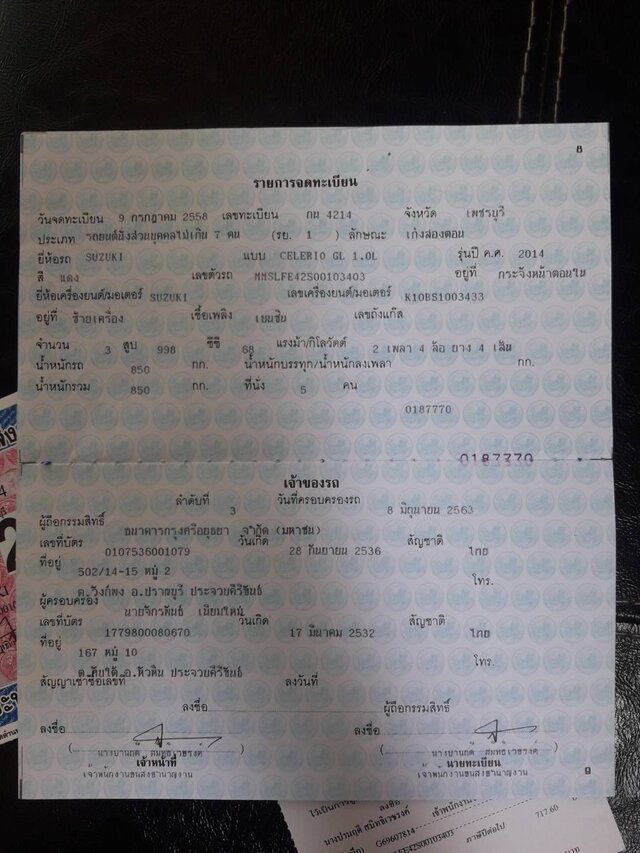 8
รายการจดทะเบียน
วันจดทะเบียน 9 กรกฎาคม 2558 เลขทะเบียน กน 4214 จังหวัด เพชรบุรี
ประเภท รถยนต์นั่งส่วนบุคคลไม่เกิน 7 คน (รย. 1 ) ลักษณะ เก๋งสองตอน
ยี่ห้อรถ SUZUKI แบบ CELERIO GL 1.0L รุ่นปี ค.ศ. 2014
สี แดง เลขตัวรถ MMSLFE42S00103403 อยู่ที่ กระจังหน้าตอนใน
ยี่ห้อเครื่องยนต์/มอเตอร์ SUZUKI เลขเครื่องยนต์/มอเตอร์ K10BS1003433
อยู่ที่ ซ้ายเครื่อง เชื้อเพลิง เบนซิน เลขถังแก๊ส
จำนวน 3 สูบ 998 ซีซี 68 แรงม้า/กิโลวัตต์ 2 เพลา 4 ล้อ ยาง 4 เส้น
น้ำหนักรถ 850 กก. น้ำหนักบรรทุก/น้ำหนักลงเพลา กก.
น้ำหนักรวม 850 กก. ที่นั่ง 5 คน
0187770
0187770
เจ้าของรถ
ลำดับที่ 3 วันที่ครอบครองรถ 8 มิถุนายน 2563
ผู้ถือกรรมสิทธิ์ ธนาคารกรุงศรีอยุธยา จำกัด (มหาชน)
เลขที่บัตร 0107536001079 วันเกิด 28 กันยายน 2536 สัญชาติ ไทย
ที่อยู่ 502/14-15 หมู่ 2 โทร.
ต.วังก์พง อ.ปราณบุรี ประจวบคีรีขันธ์
ผู้ครอบครอง นายจักรพันธ์ เนียมใหม่
เลขที่บัตร 1779800080670 วันเกิด 17 มีนาคม 2532 สัญชาติ ไทย
ที่อยู่ 167 หมู่ 10 โทร.
ต.ทับใต้ อ.หัวหิน ประจวบคีรีขันธ์
สัญญาเช่าซื้อเลขที่ ลงวันที่
ลงชื่อ ผู้ถือกรรมสิทธิ์
ลงชื่อ ลงชื่อ
( นางปานฤดี สมิทธิเวชรงค์ ) ( นางปานฤดี สมิทธิเวชรงค์ )
เจ้าหน้าที่ นายทะเบียน
เจ้าพนักงานขนส่งชำนาญงาน เจ้าพนักงานขนส่งชำนาญงาน
9
ลงชื่อ เจ้าพนักงาน
นางปานฤดี สมิทธิเวชรงค์ 717.60
G69607814 ภาษีปีต่อไป
LFE42S00103403
บาท